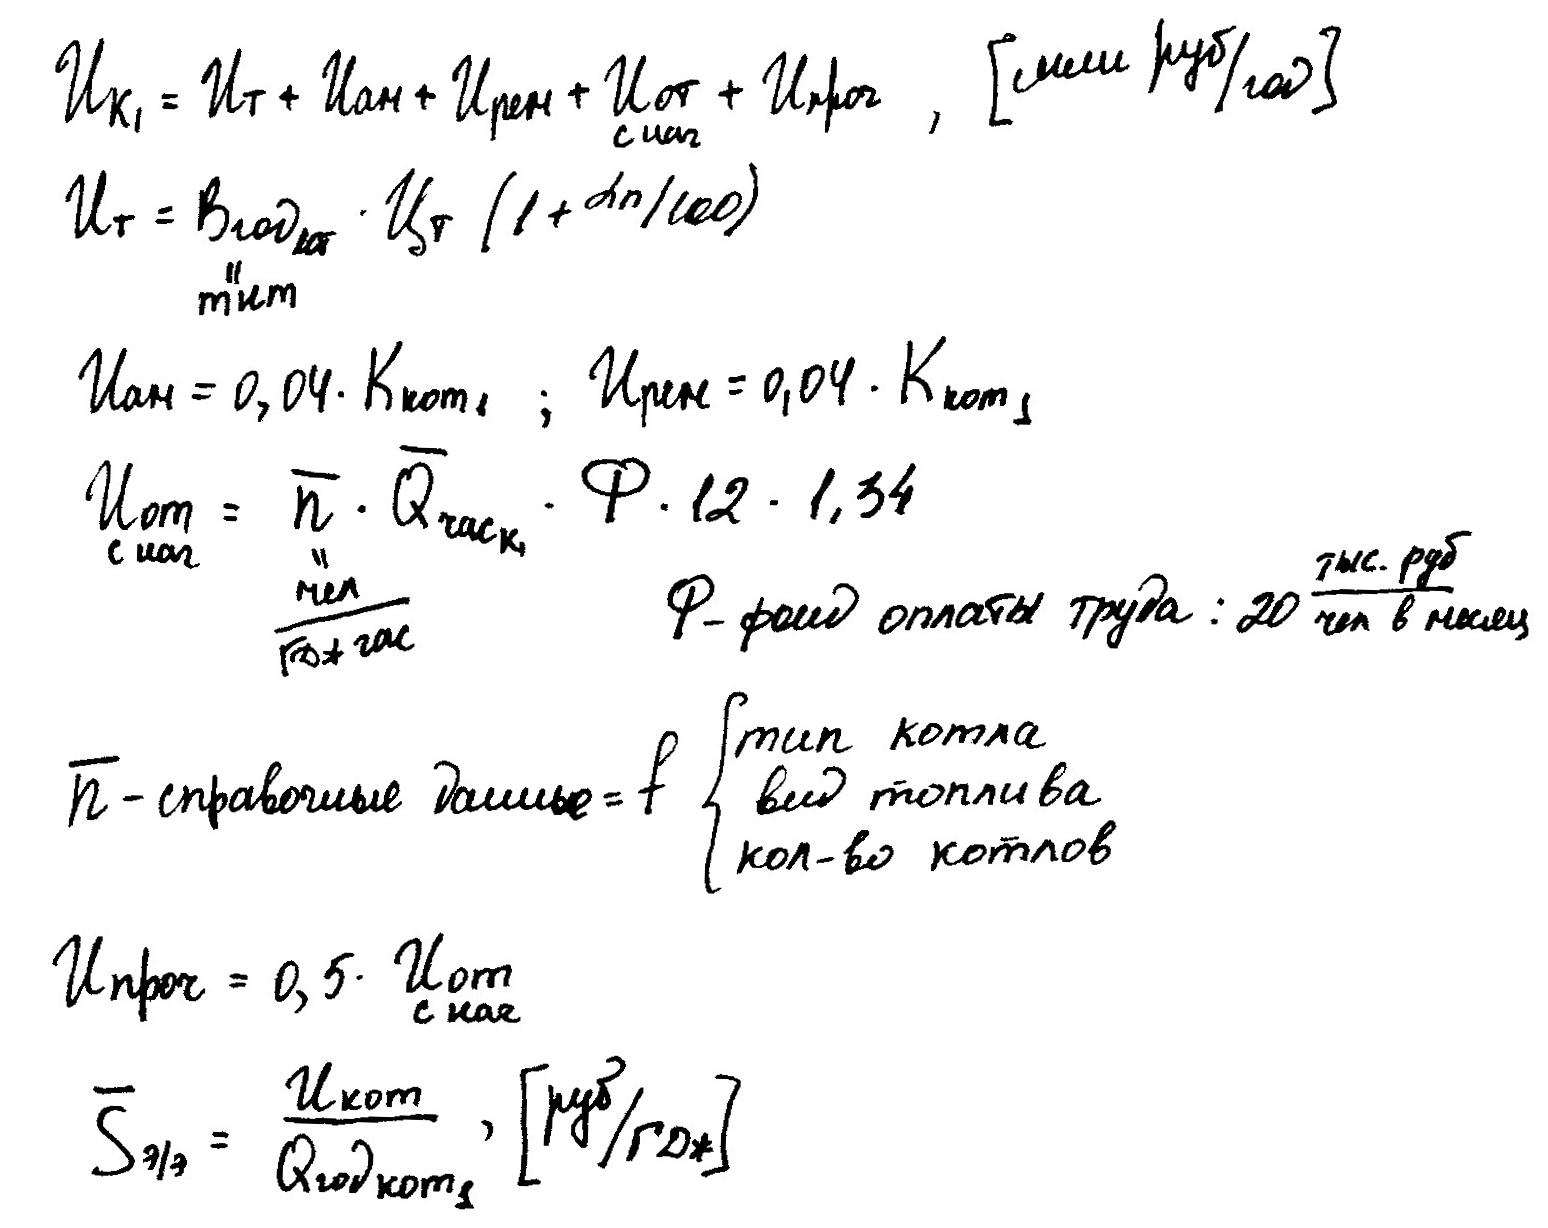 Ик₁ = Ит + Иам + Ирем + Иот с нач + Ипроч , [млн руб/год]
Ит = Вгод кот · Цт (1 + αп/100)
" тнт
Иам = 0,04 · Ккот₁ ; Ирем = 0,04 · Ккот₁
Иот с нач = n̄ · Q̄час к₁ · Ф · 12 · 1,34
" чел/ГДж час
Ф - фонд оплаты труда : 20 тыс. руб/чел в месяц
n̄ - справочные данные = f { тип котла
вид топлива
кол-во котлов
Ипроч = 0,5 · Иот с нач
S̄э/э = Икот/Qгод кот₁ , [руб/ГДж]